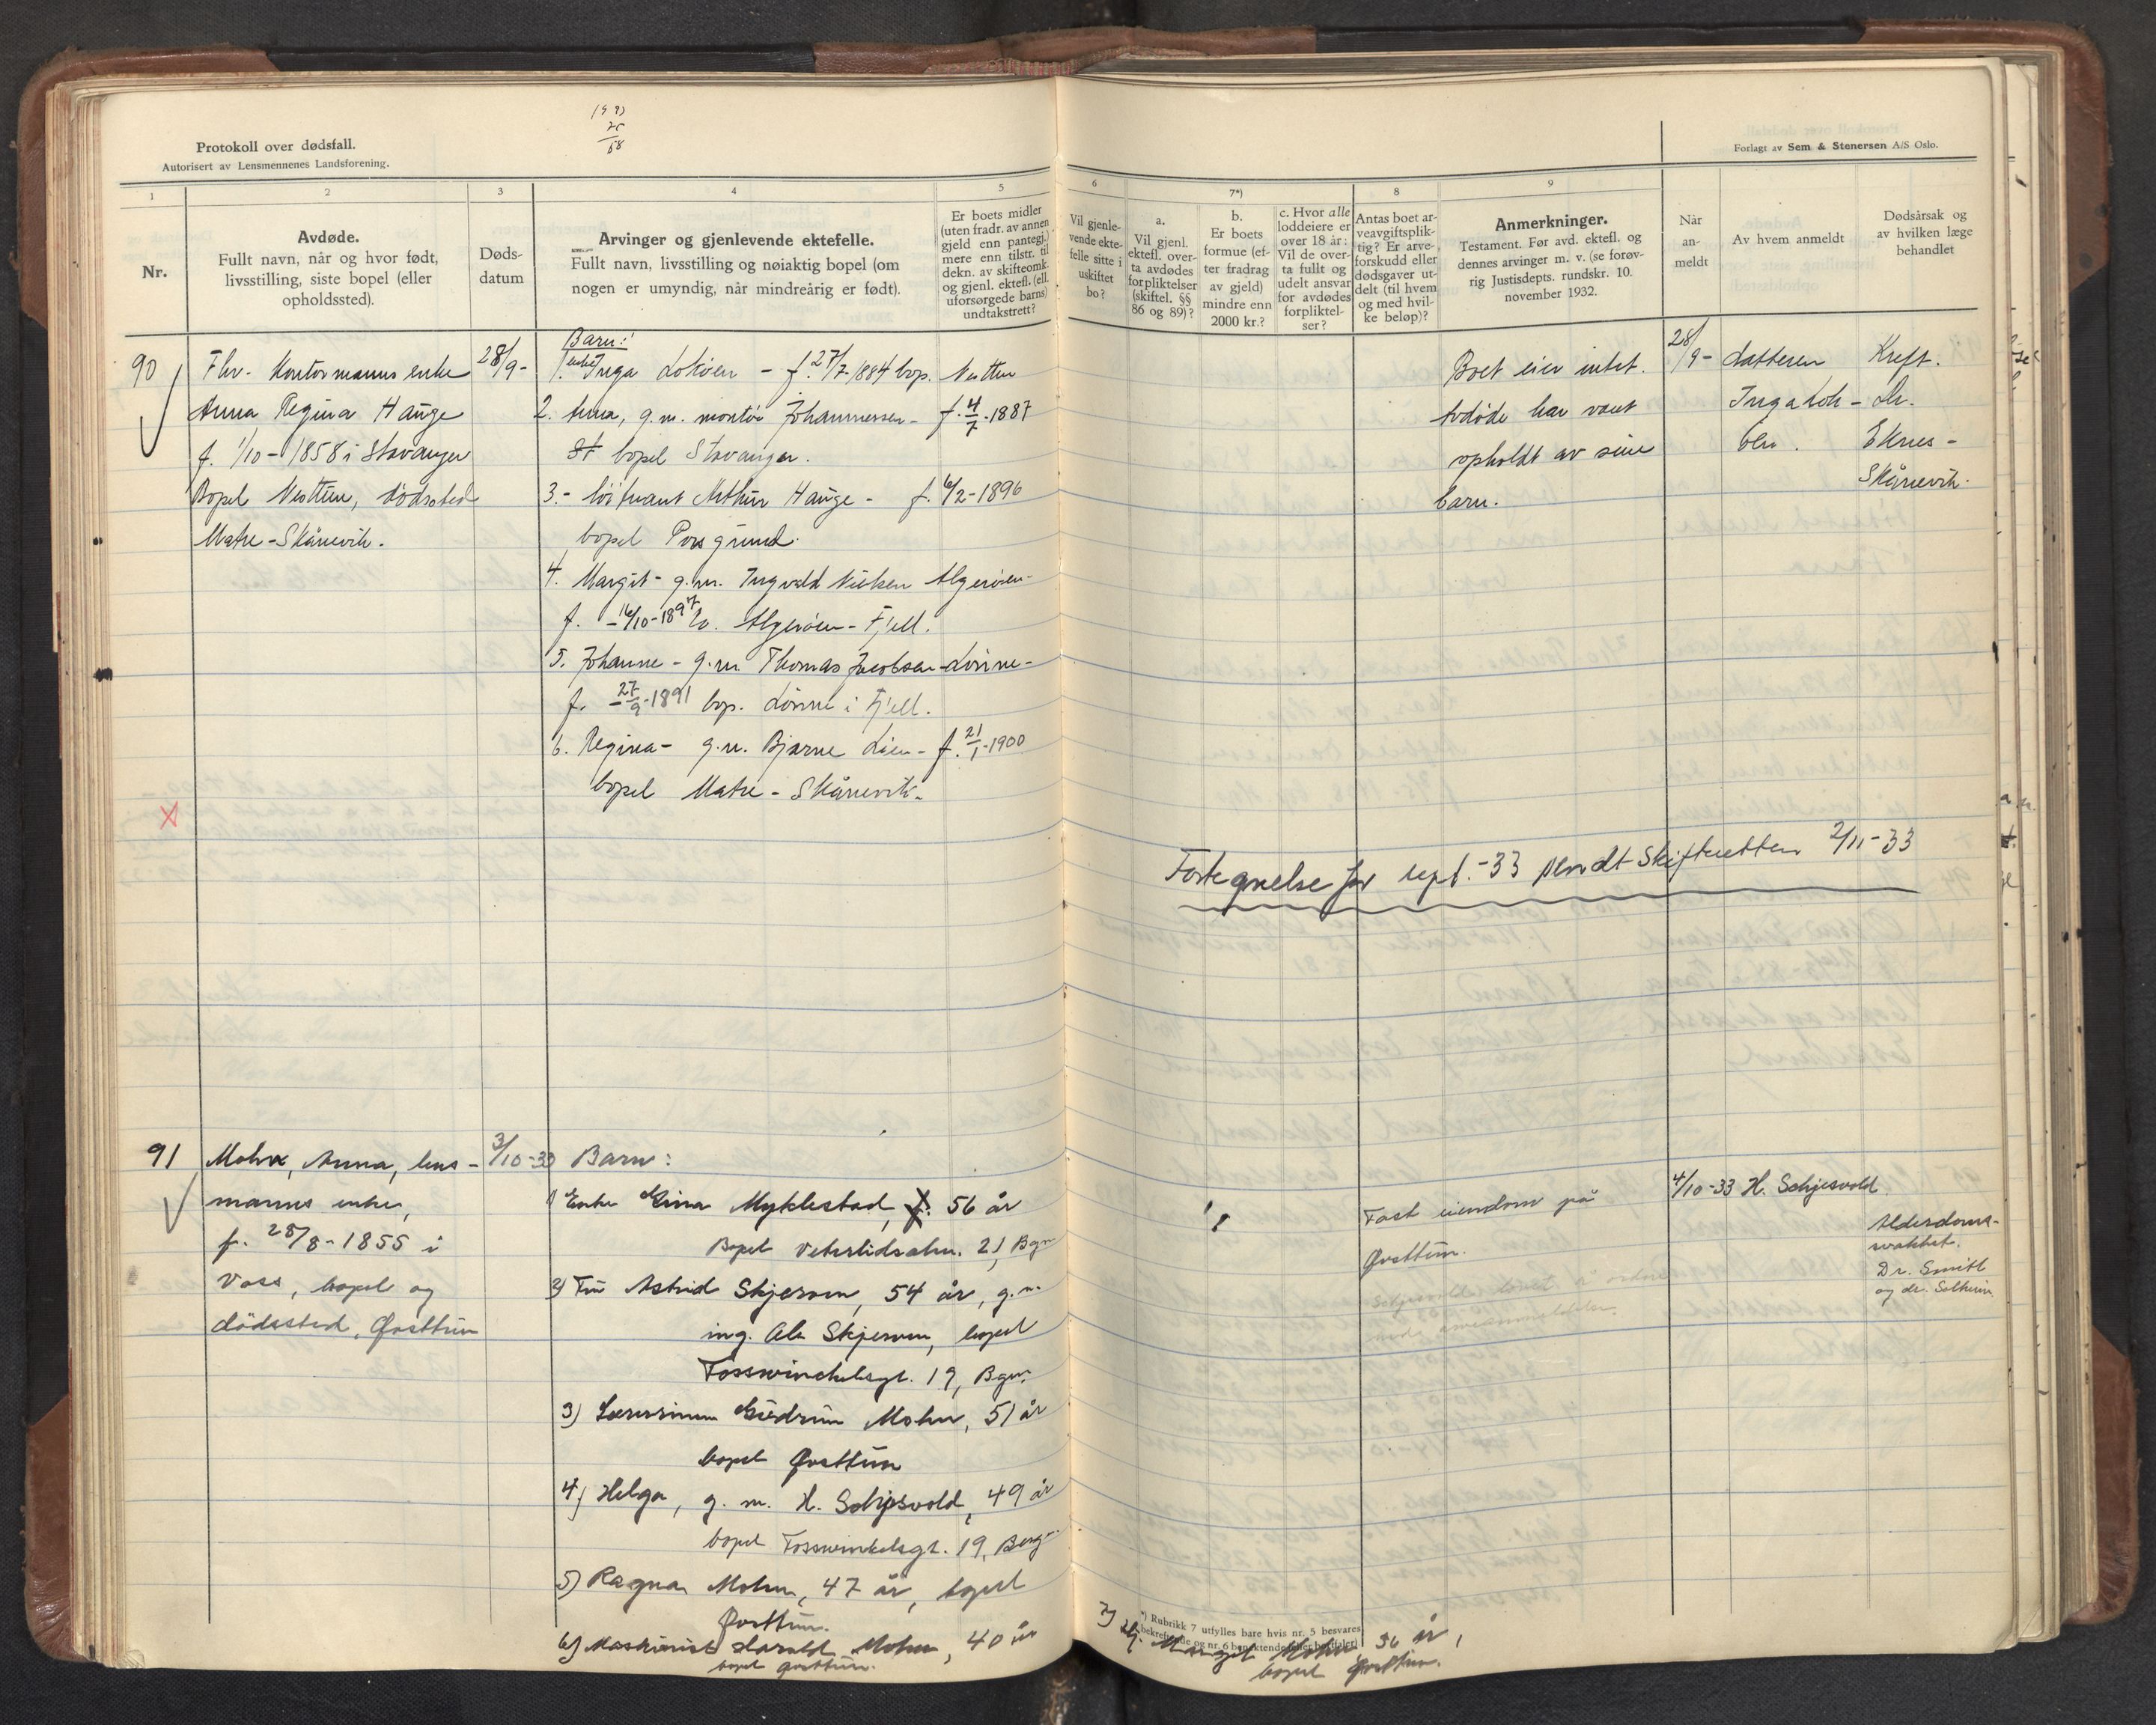 Protokoll over dødsfall.
Autorisert av Lensmennenes Landsforening.
Forlagt av Sem & Stenersen A/S Oslo.
1 2 3 4 5 6 7*) 8 9
Nr.
Avdøde.
Fullt navn, når og hvor født,
livsstilling, siste bopel (eller
opholdssted).
Døds-
datum
Arvinger og gjenlevende ektefelle.
Fullt navn, livsstilling og nøiaktig bopel (om
nogen er umyndig, når mindreårig er født).
Er boets midler
(uten fradr. av annen
gjeld enn pantegj.)
mere enn tilstr. til
dekn. av skifteomk.
og gjenl. ektef. (ell.
uforsørgede barns)
undtakstrett?
Vil gjenle-
vende ekte-
felle sitte i
uskiftet
bo?
a.
Vil gjenl.
ektef. over-
ta avdødes
forpliktelser
(skiftel. §§
86 og 89)?
b.
Er boets
formue (ef-
ter fradrag
av gjeld)
mindre enn
2000 kr.?
c. Hvor alle
loddeiere er
over 18 år:
Vil de over-
ta fullt og
udelt ansvar
for avdødes
forpliktel-
ser?
Antas boet ar-
veavgiftsplik-
tig? Er arve-
forskudd eller
dødsgaver ut-
delt (til hvem
og med hvil-
ke beløp)?
Anmerkninger.
Testament. Før avd. ektef. og
dennes arvinger m. v. (se forøv-
rig Justisdepts. rundskr. 10.
november 1932.
Når
an-
meldt
Av hvem anmeldt
Dødsårsak og
av hvilken læge
behandlet
90
Fhv. Kontormanns enke
Anna Regina Hauge
f. 1/10-1858 i Stavanger
Bopel Nesttun, dödssted
Matre-Skånevik.
28/9-
Barn:
1. enke Inga Loköen - f. 27/7-1884 bop. Nesttun
2. Anna, g.m. montör Johannessen - f. 4/7-1887
St bopel Stavanger.
3.- löitnant Arthur Hauge - f. 6/2-1896
bopel Porsgrund.
4. Margit - g.m. Ingvald Nielsen Algeröen-
f. 16/10-1897 bo. Algeröen - Fjell.
5. Johanne - g.m. Thomas Jacobsen-Lönne-
f. 27/9-1891 bop. Lönne i Fjell.
6. Regina - g.m. Bjarne Lien - f. 21/1-1900
bopel Matre - Skånevik.
Boet eier intet.
Avdøde har vært
opholdt av sine
barn.
28/9- datteren
Inga Lok-
öen.
Kreft.
Dr.
Eknes-
Skånevik.
Fortegnelse for sept.-33 sendt Skifteretten 2/11-33
91
Mohn, Anna, lens-
manns enke,
f. 28/8-1855 i
Voss, bopel og
dödssted, Øvsttun
3/10-33
Barn:
1) Enke Gina Myklestad, f. 56 år
Bopel Veterlidsalm. 21 Bgn
2) Fru Astrid Skjerven, 54 år, g.m.
ing. Ole Skjerven, bopel
Fosswinckelsgt. 19, Bgn.
3) Lærerinne Gudrun Mohn, 51 år
bopel Øvsttun
4) Helga, g. m. H. Schjesvold, 49 år
bopel Fosswinckelsgt. 19, Berg
5) Ragna Mohn, 47 år, bopel
Øvsttun.
6) Maskinist Harald Mohn, 40 år
bopel Øvsttun.
7) Margit Mohn, 36 år,
bopel Øvsttun.
Fast eiendom på
Øvsttun.
4/10-33 H. Schjesvold.
Alderdoms-
svakhet.
Dr. Smith
og dr. Solheim.
*) Rubrikk 7 utfylles bare hvis nr. 5 besvares